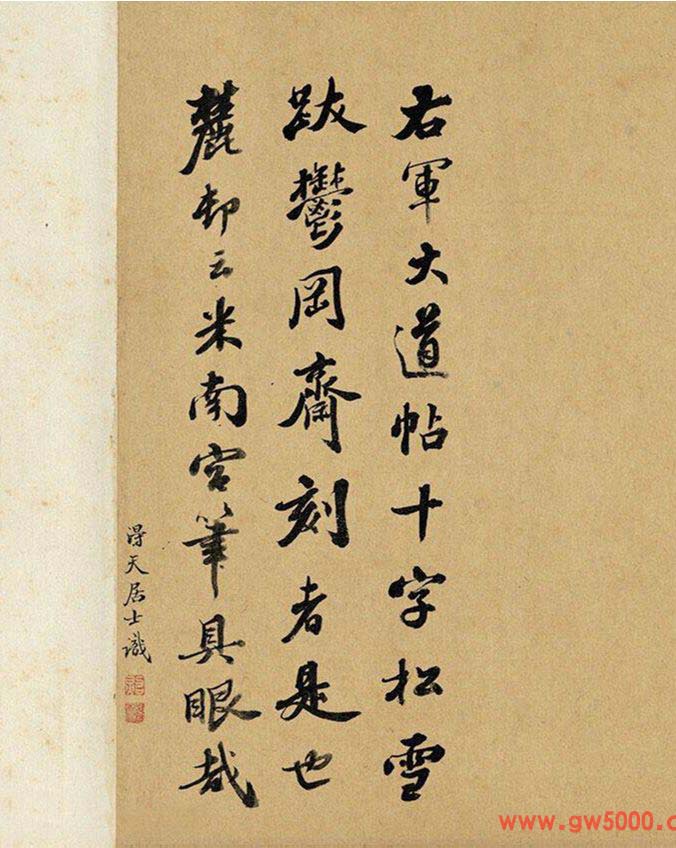 右軍大道帖十字松雪
跋鬱岡齋刻者是也
麓却云米南宮筆具眼哉
得天居士識
www.gw5000.c